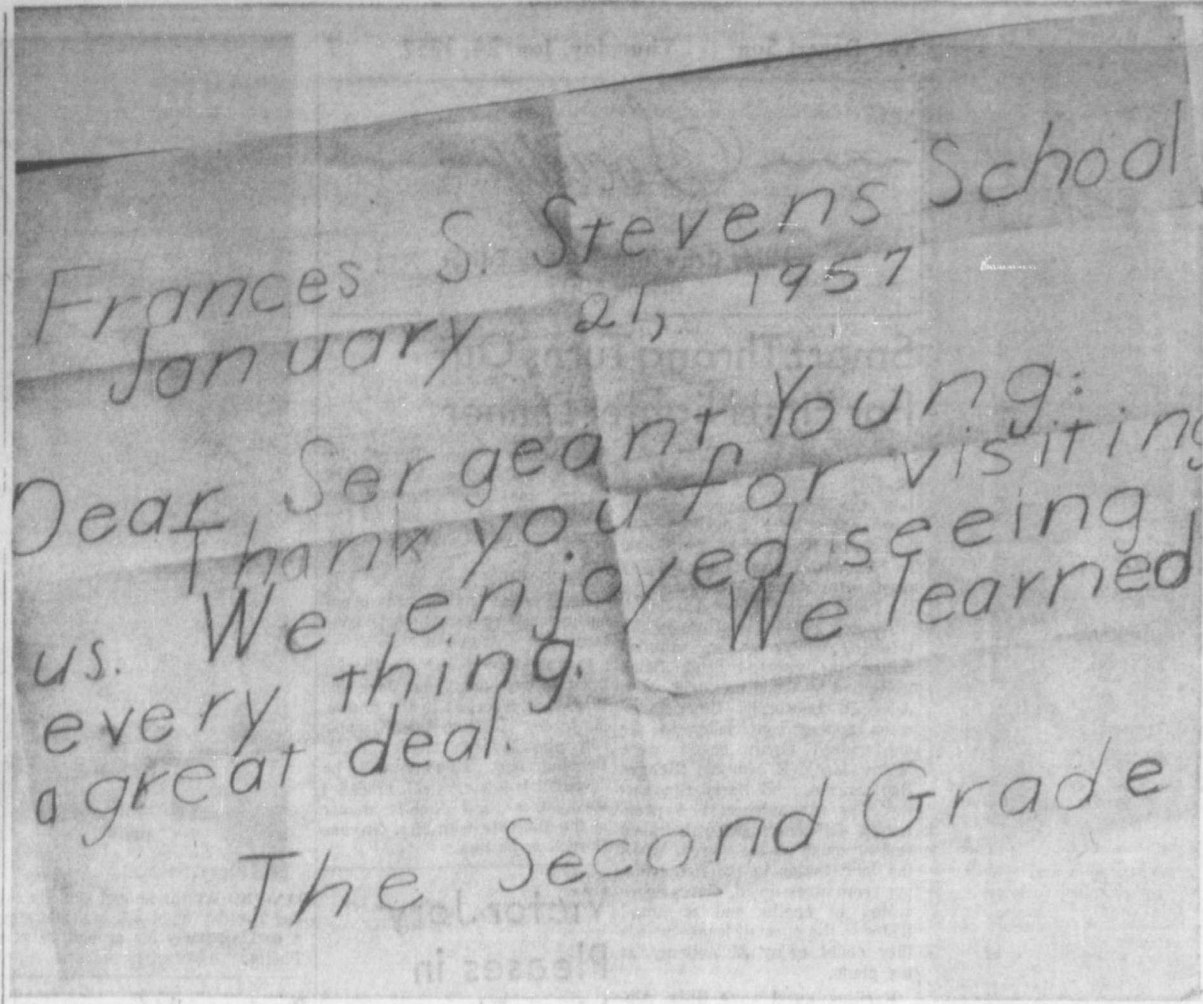 Frances S. Stevens School
January 21, 1957
Dear Sergeant Young:
Thank you for visiting
us. We enjoyed seeing
every thing. We learned
a great deal.
The Second Grade